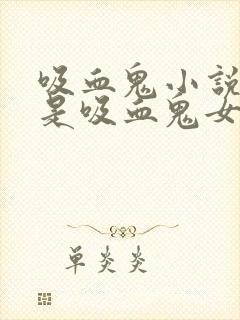 吸血鬼小説
是吸血鬼女
單炎炎